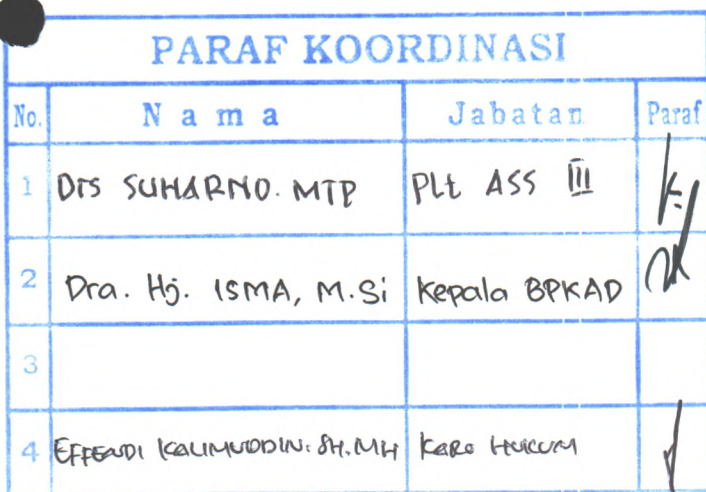 PARAF KOORDINASI
No. Nama Jabatan Paraf
1 Drs SUHARNO. MTP Plt ASS III
2 Dra. Hj. ISMA, M.Si Kepala BPKAD
3
4 EFFENDI KALIMUDDIN. SH. MH Karo HUKUM